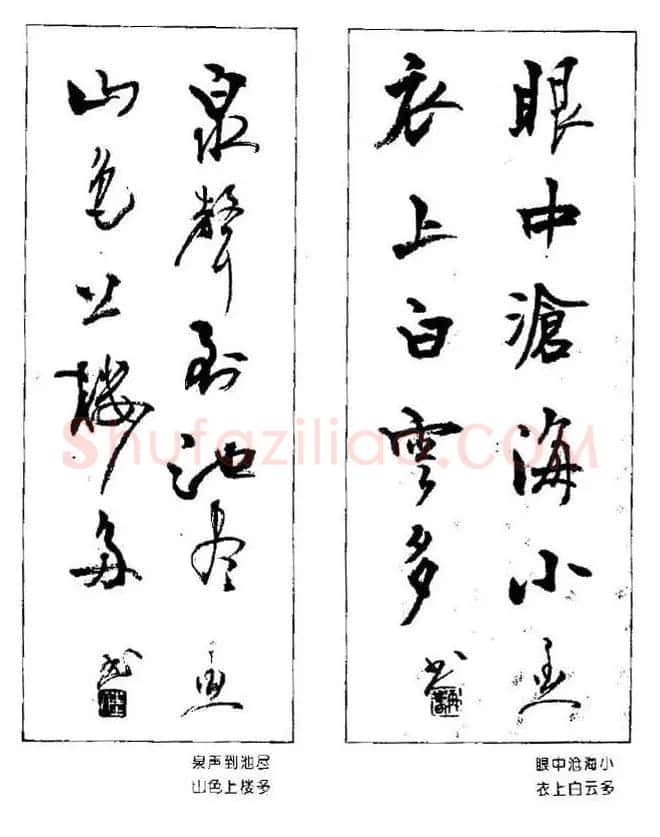 眼中滄海小
衣上白雲多
书
泉聲到池尽
山色上樓多
书
Shufaziliao.COM
泉声到池尽
山色上楼多
眼中沧海小
衣上白云多